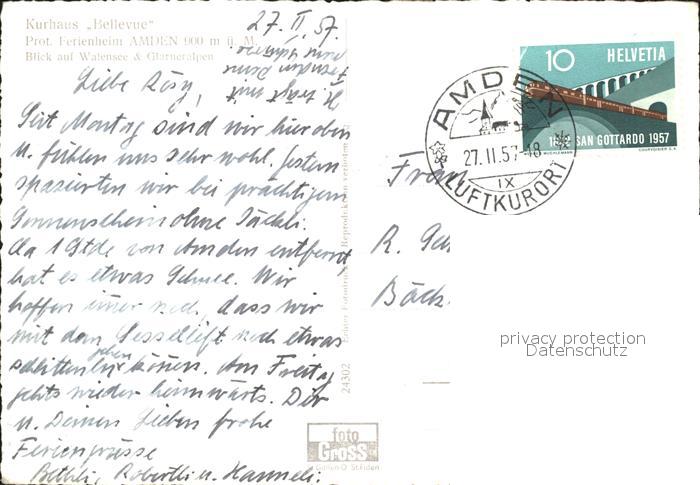 Kurhaus „Bellevue“
Prot. Ferienheim AMDEN 900 m ü. M.
Blick auf Walensee & Glarneralpen
27. II. 57.
Liebe Rösy,
Seit Montag sind wir hier oben
u. fühlen uns sehr wohl. Gestern
spazierten wir bei prächtigem
Sonnenschein ohne Jäckli.
Ca 1 Stde von Amden entfernt
hat es etwas Schnee. Wir
hoffen immer noch, dass wir
mit dem Sessellift noch etwas
schlitteln gehen können. Am Freitag
gehts wieder heimwärts. Dir
u. Deinen Lieben frohe
Feriengrüsse
Bethli, Robertli u. Hanneli.
24302
foto
GROSS
St. Gallen
AMDEN
27.II.57-18
IX
LUFTKURORT
10 HELVETIA
SAN GOTTARDO 1957
COURVOISIER S.A.
R.
privacy protection
Datenschutz